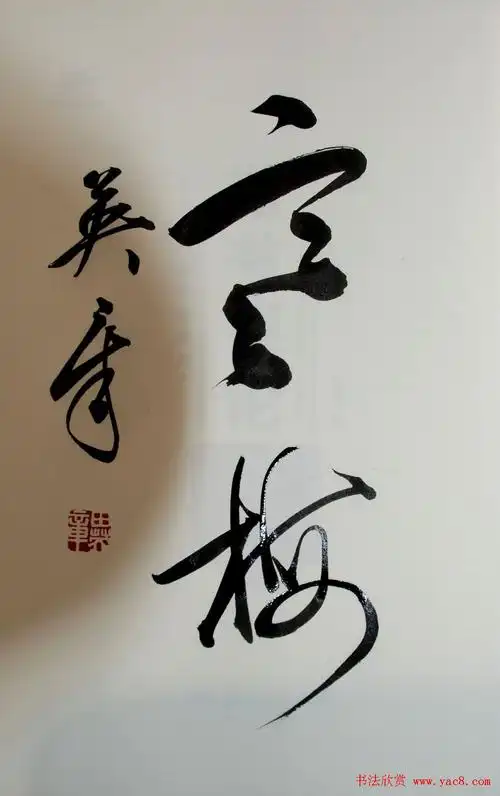 寒梅
英章
英章
书法欣赏 www.yac8.com